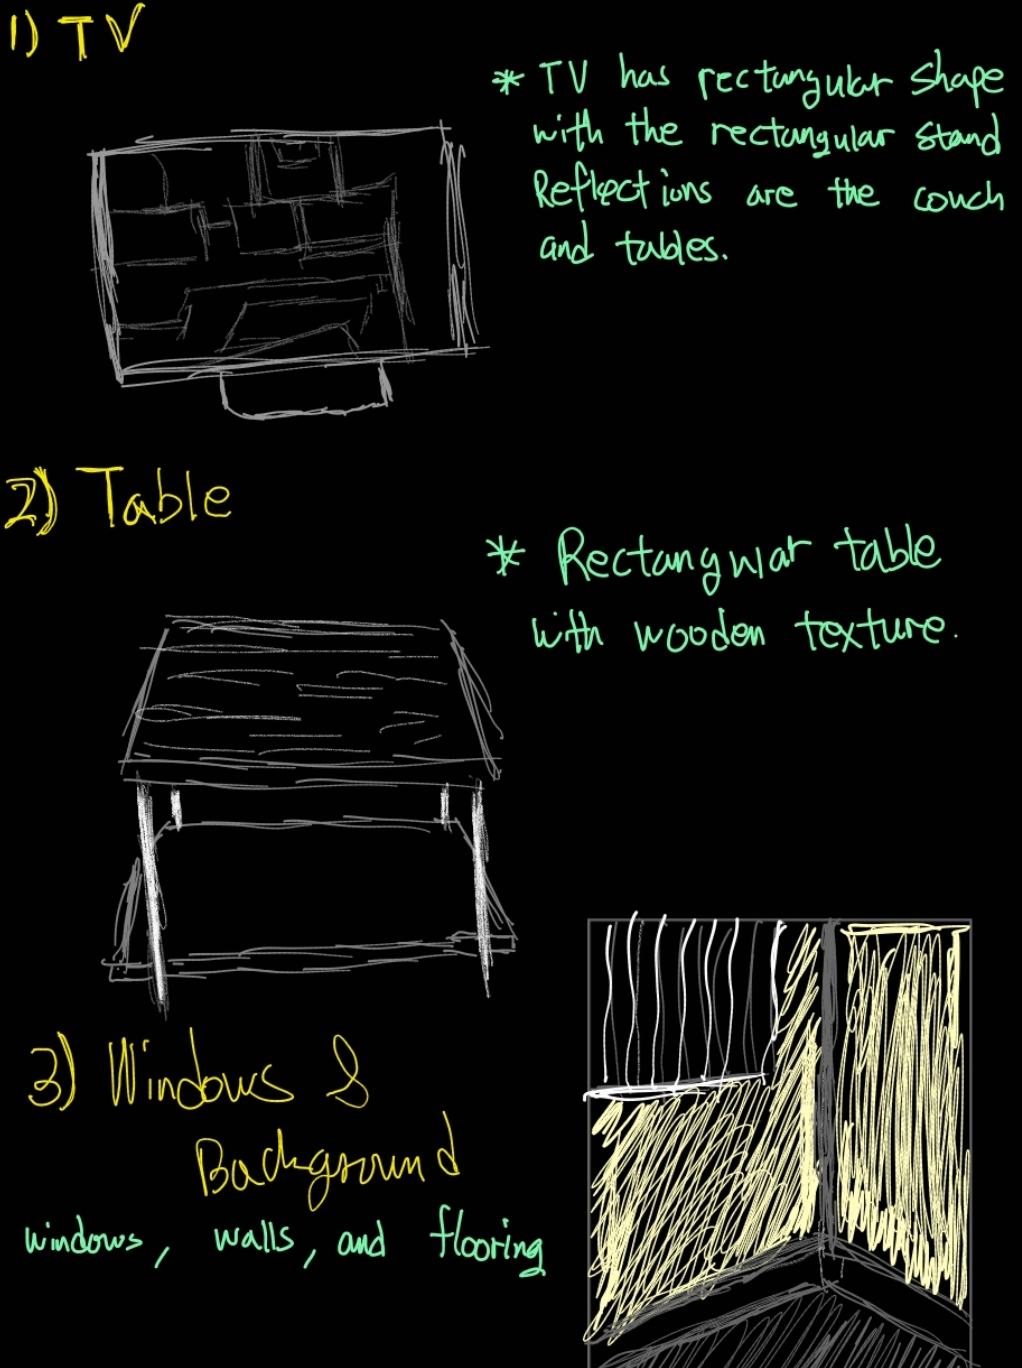 1) TV
* TV has rectangular shape
with the rectangular stand
Reflections are the couch
and tables.
2) Table
* Rectangular table
with wooden texture.
3) Windows &
Background
windows, walls, and flooring